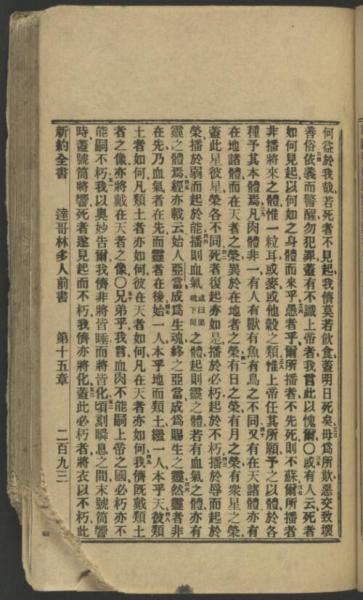 何益於我哉若死者不見起我儕莫若飲食蓋明日死矣毋爲所欺惡交致壞
善俗依義而警醒勿犯罪蓋有不識上帝者我言此以愧爾〇或有人云死者
如何見起以何如之身體而來乎愚者乎爾所播者不先死則不蘇爾所播者
非播將來之體惟一粒耳或麥或他穀之類惟上帝任其所願予之以體於各
種予其本體焉凡肉體非一有人有獸有魚有鳥之不同又有在天諸體亦有
在地諸體而在天者之榮異於在地者之榮有日之榮有月之榮有衆星之榮
蓋此星彼星榮各不同死者復起亦如是播於必朽起於不朽播於辱而起於
榮播於弱而起於能播則血氣或曰屬魂下同之體起則靈之體若有血氣之體亦有
靈之體焉經亦載云始人亞當成爲生魂終之亞當成爲賜生之靈然靈者非
在先乃血氣者在先而靈者在後始一人本乎地而類土繼一人本乎天彼類
土者如何凡類土者亦如何彼在天者如何凡在天者亦如何我儕旣戴類土
者之像亦將戴在天者之像〇兄弟乎我言血肉不能嗣上帝之國必朽亦不
能嗣不朽我以奧妙告爾我儕非將皆睡而將皆化頃刻瞬息之間末號筒響
時蓋號筒將響死者遂見起而不朽我儕亦將化蓋此必朽者將衣以不朽此
新約全書 達哥林多人前書 第十五章 二百九三